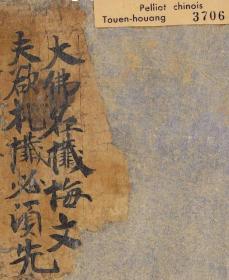 Pelliot chinois
Touen-houang 3706
大佛名懺悔文
夫欲礼懺必須先